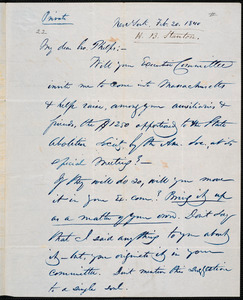 Private
New York, Feb. 20. 1840
H. B. Stanton.
22
My dear bro. Phelps:-
Will your Executive Committee
invite me to come into Massachusetts
& help raise, among your auxiliaries &
friends, the $1250 apportioned to the State
Abolition Society by the Am. Soc. at its
special meeting? -
If they will do so, will you move
it in your Ex. Com.? Bring it up
as a matter of your own. Don't say
that I said anything to you about
it - but you originate it in your
committee. Don't mention the suggestion
to a single soul.